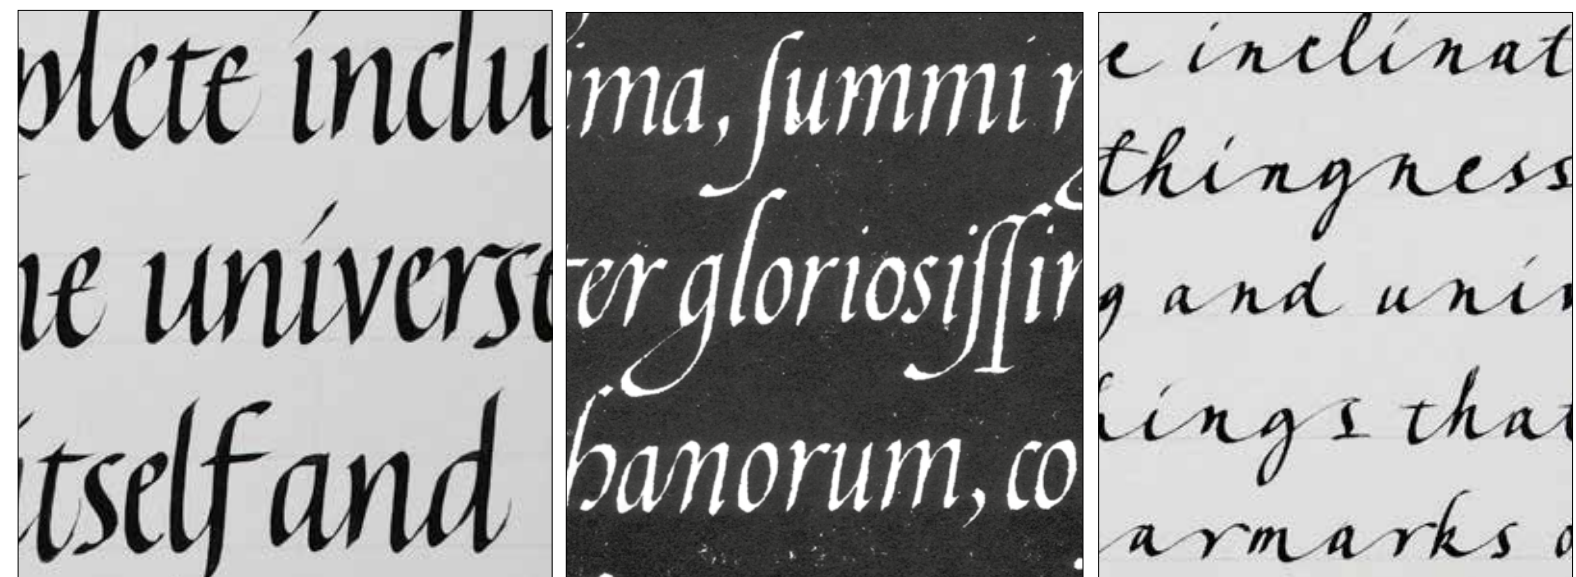 plete inclu
he universe
itself and
ima, ſummi r
ter glorioſiſſim
hanorum, co
e inclinat
thingness
g and unin
hings that
armarks o